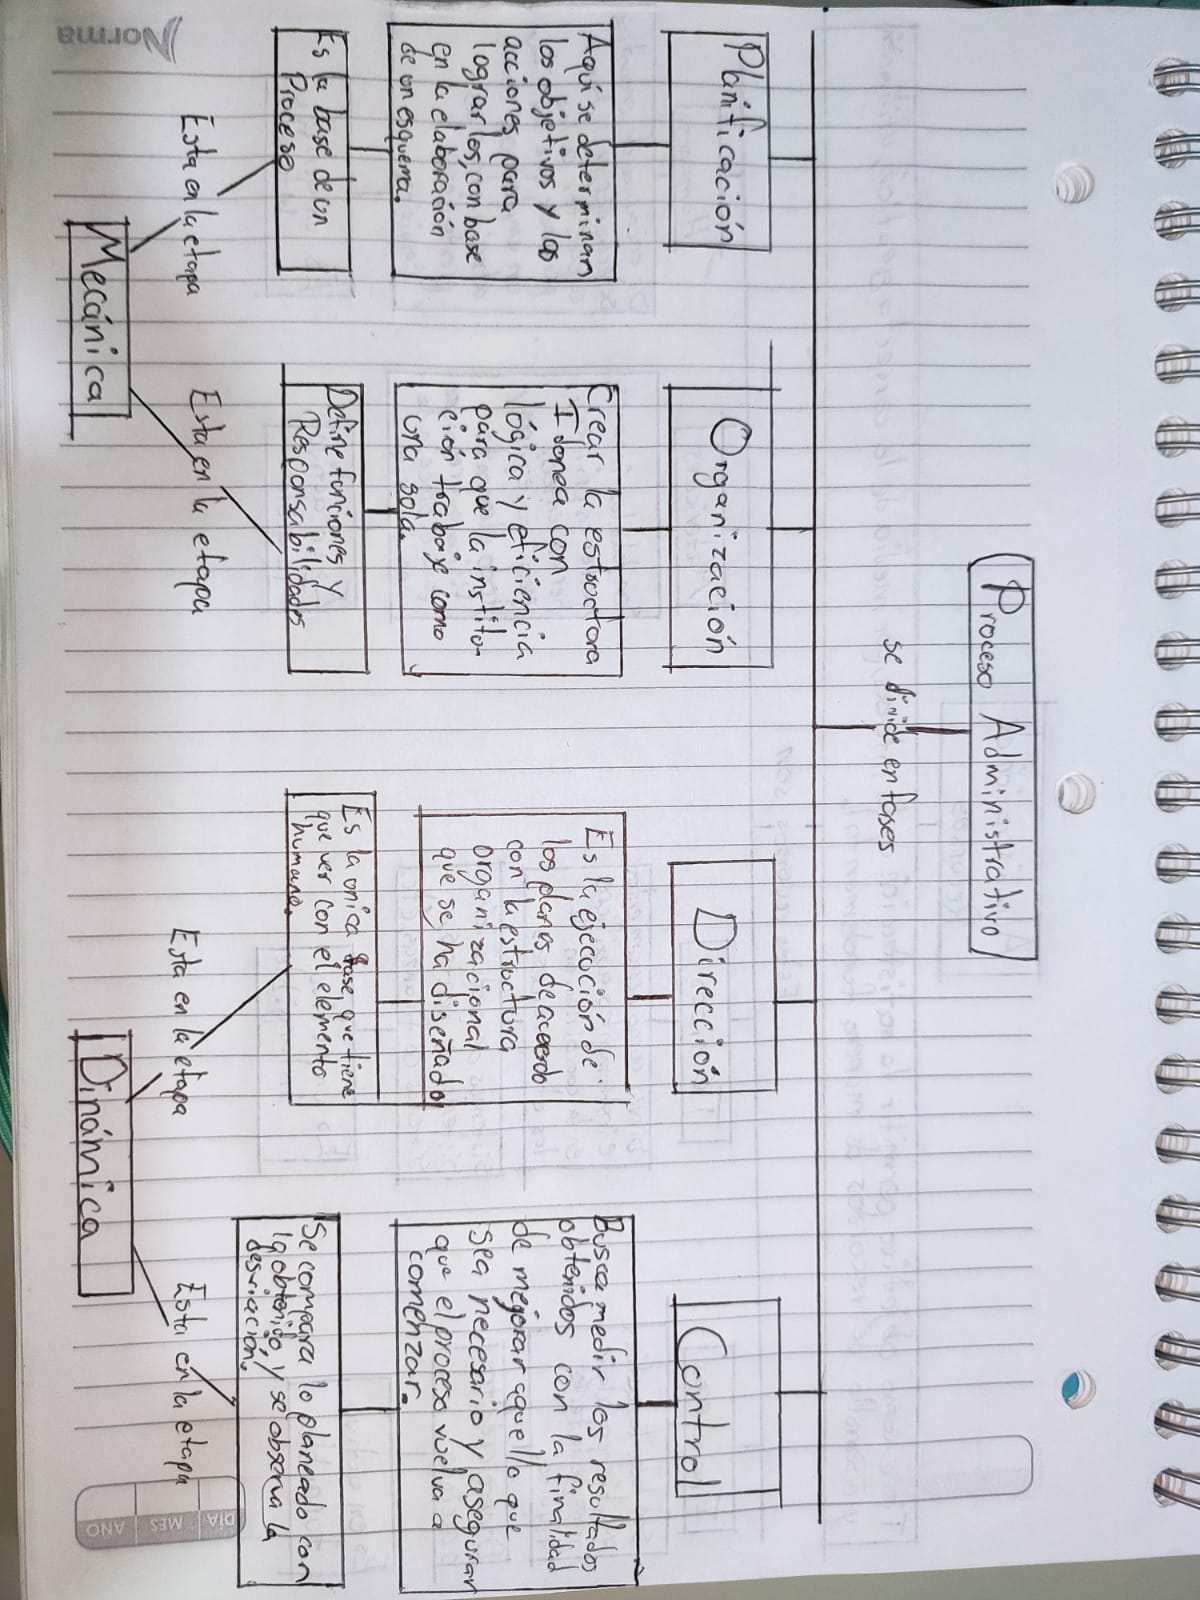 Proceso Administrativo
se divide en fases
Planificación
Aquí se determinan
los objetivos y las
acciones para
lograrlos, con base
en la elaboración
de un esquema.
Es la base de un
Proceso
Esta en la etapa
Organización
Crear la estructura
Idonea con
lógica y eficiencia
para que la institu-
ción trabaje como
una sola.
Define funciones y
Responsabilidades
Esta en la etapa
Mecánica
Dirección
Es la ejecución de
los planes de acuerdo
con la estructura
organizacional
que se ha diseñado
Es la unica fase que tiene
que ver con el elemento
humano.
Esta en la etapa
Control
Busca medir los resultados
obtenidos con la finalidad
de mejorar aquello que
sea necesario y asegurar
que el proceso vuelva a
comenzar.
Se compara lo planeado con
lo obtenido, y se observa la
desviación.
Esta en la etapa
Dinámica
Norma
DÍA MES AÑO